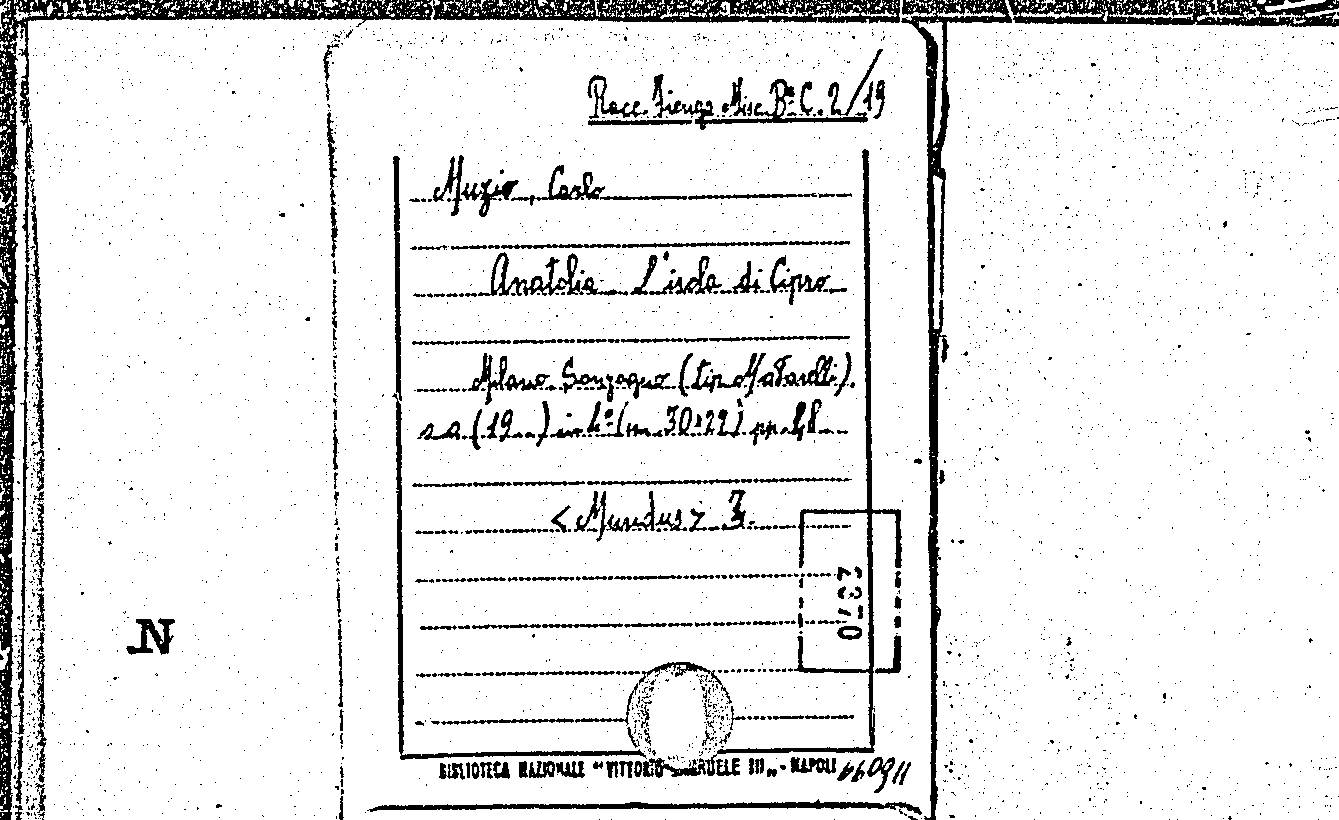 Racc. Fienga Misc. Bª C. 2/19
Muzio, Carlo
Anatolia L'isola di Cipro
Milano Sonzogno (tip Matarelli).
s a (19..) in 4º (m. 30x22) pp. 48
<Mundus> 3.
2370
N
BIBLIOTECA NAZIONALE "VITTORIO EMANUELE III" - NAPOLI